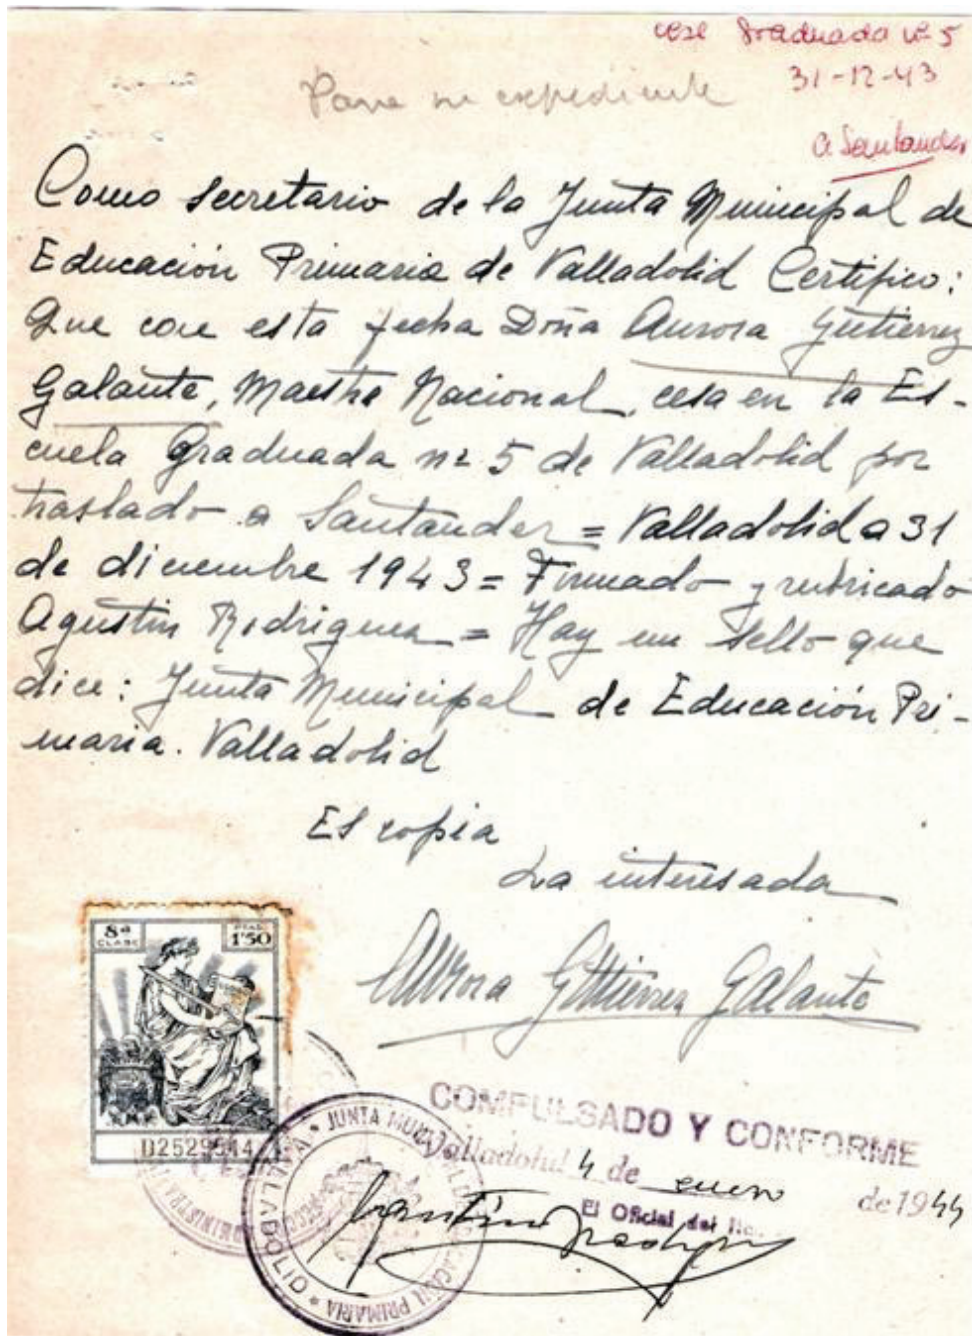 cese Graduada nº 5
31-12-43
a Santander
Para su expediente
Como secretario de la Junta Municipal de
Educación Primaria de Valladolid Certifico:
Que con esta fecha Doña Aurora Gutierrez
Galante, Maestra Nacional, cesa en la Es-
cuela Graduada nº 5 de Valladolid por
traslado a Santander = Valladolid a 31
de diciembre 1943 = Firmado y rubricado
Agustin Rodriguez = Hay un sello que
dice: Junta Municipal de Educación Pri-
maria. Valladolid
Es copia
La interesada
Aurora Gutierrez Galante
8ª CLASE
1'50
D2529544
COMPULSADO Y CONFORME
Valladolid 4 de enero de 1944
El Oficial del
JUNTA MUNICIPAL DE EDUCACIÓN PRIMARIA
VALLADOLID